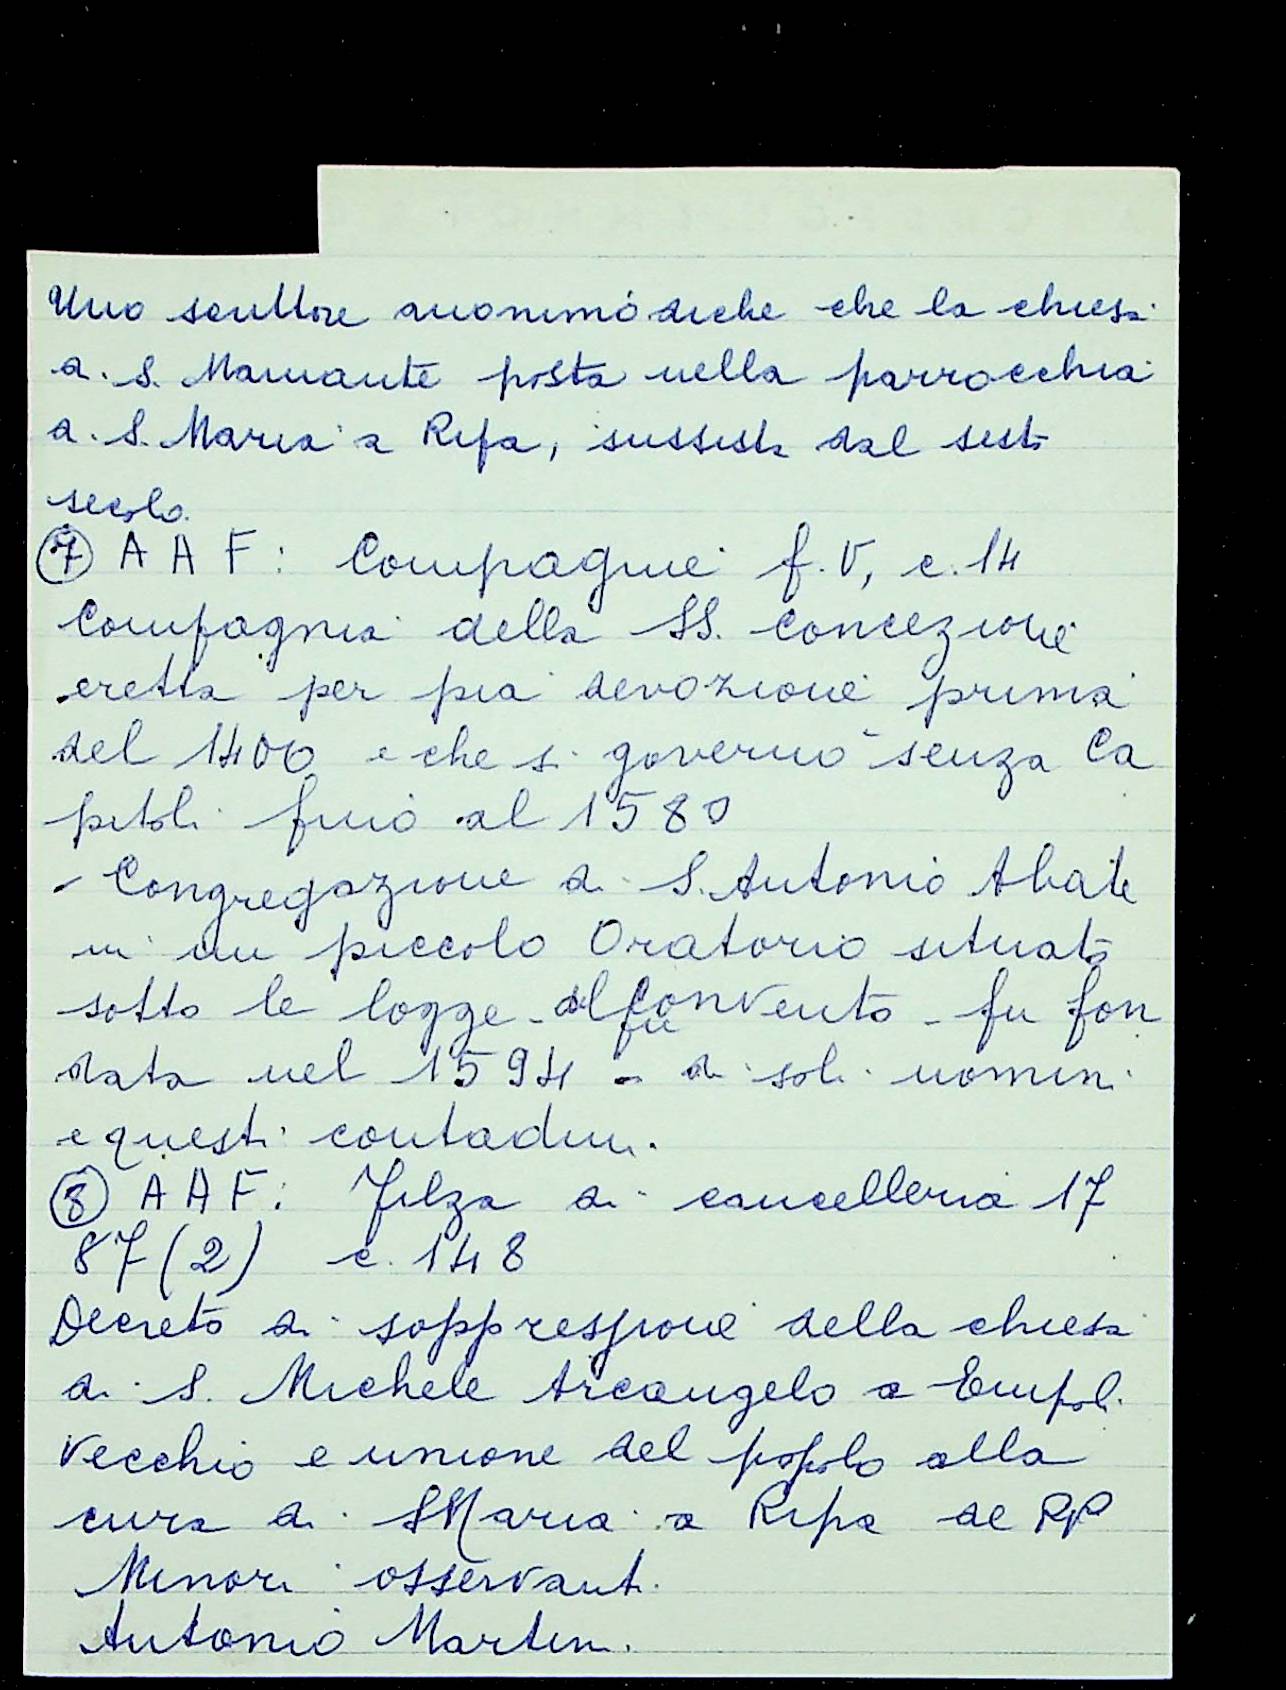 Uno scrittore anonimo diche che la chiesa
di S. Mamante posta nella parrocchia
di S. Maria a Ripa, sussiste dal sesto
secolo.
7 A A F: Compagnie f. V, c. 14
Compagnia della SS. Concezione
eretta per pia devozione prima
del 1400 e che si governò senza Ca
pitoli fino al 1580
- Congregazione di S. Antonio Abate
in un piccolo Oratorio situato
sotto le logge del Convento - fu fon
data nel 1594 - di soli uomini
e questi contadini.
8 A A F: Filza di cancelleria 17
87 (2) c. 148
Decreto di soppressione della chiesa
di S. Michele Arcangelo a Empoli
Vecchio e unione del popolo alla
cura di S Maria a Ripa de PP
Minori osservanti.
Antonio Martini.